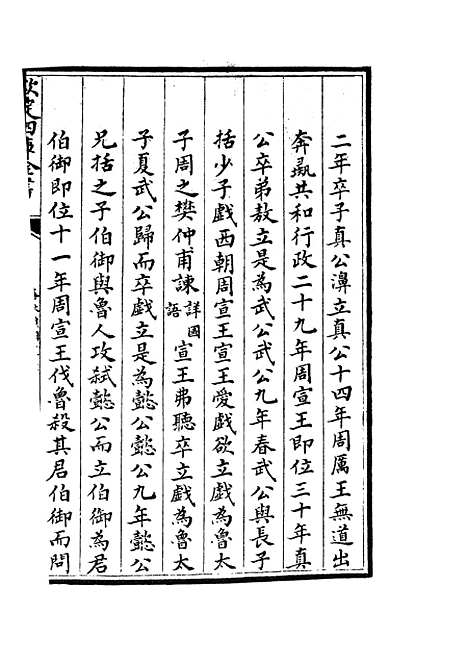 二年卒子真公濞立真公十四年周厲王無道出
奔彘共和行政二十九年周宣王即位三十年真
公卒弟敖立是為武公武公九年春武公與長子
括少子戲西朝周宣王宣王愛戲欲立戲為魯太
子周之樊仲甫諫詳國語宣王弗聽卒立戲為魯太
子夏武公歸而卒戲立是為懿公懿公九年懿公
兄括之子伯御與魯人攻弑懿公而立伯御為君
伯御即位十一年周宣王伐魯殺其君伯御而問
欽定四庫全書